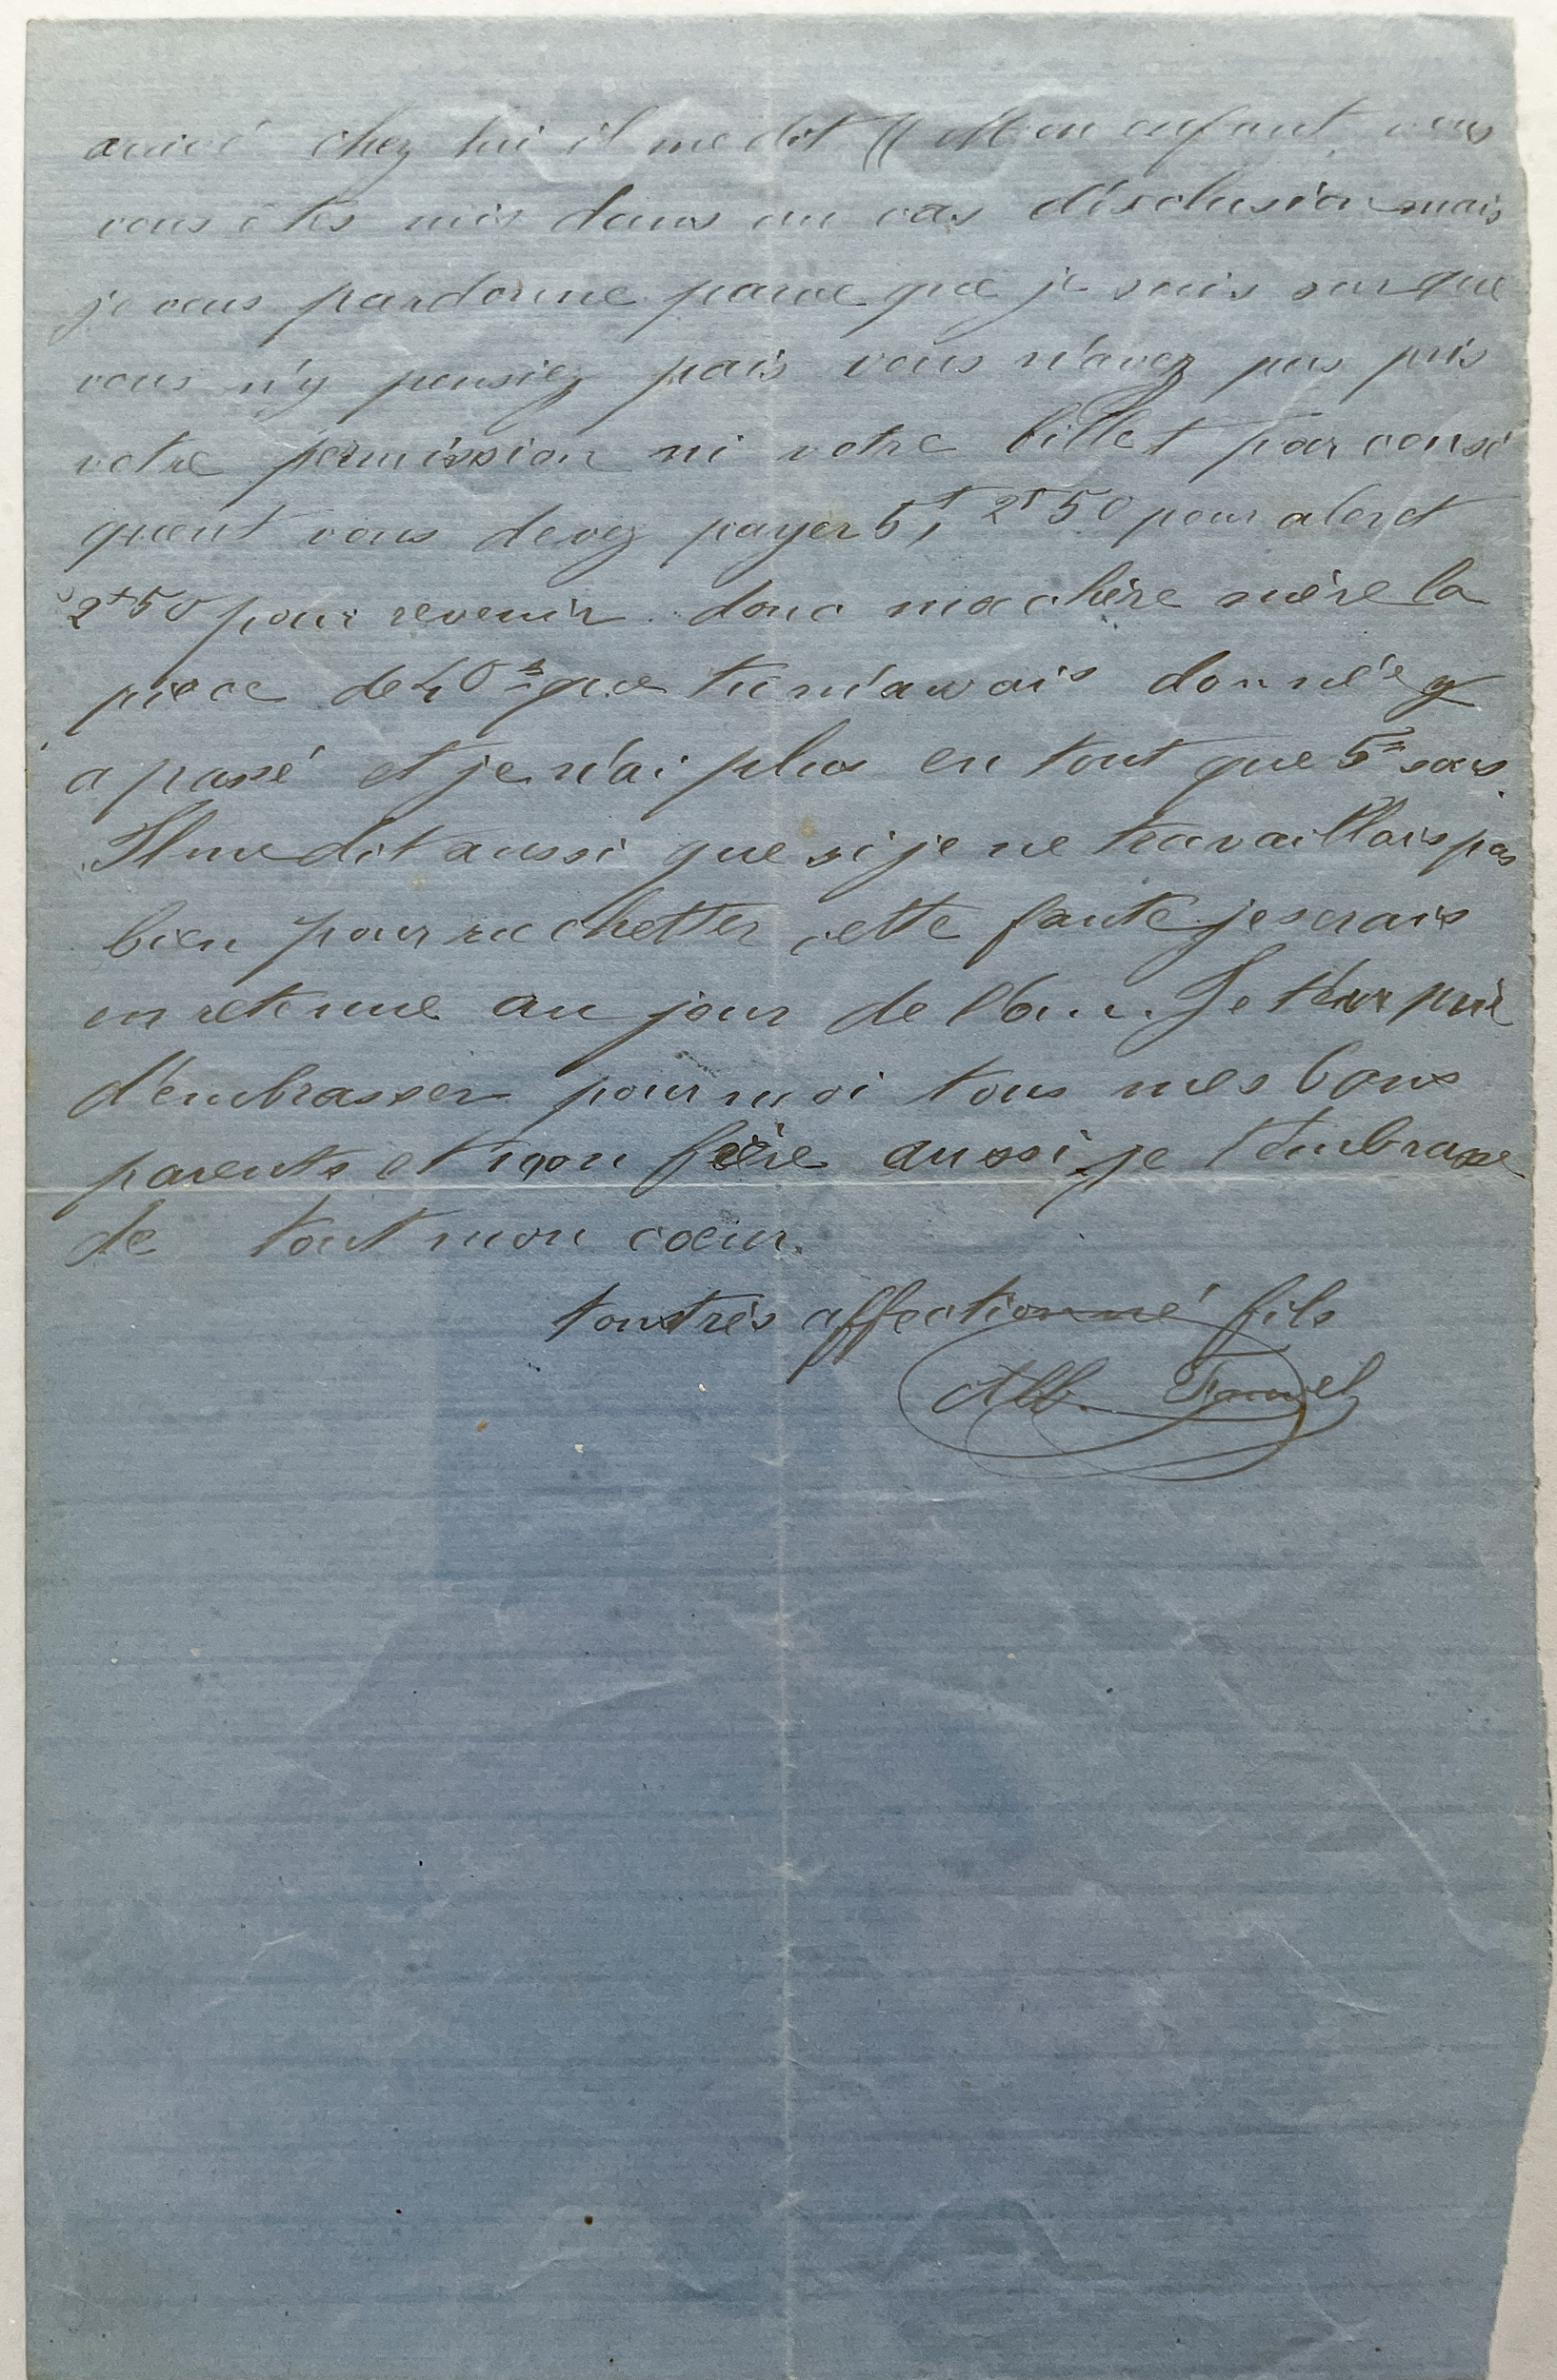 arrivé chez lui il me dit (( Mon enfant vous
vous êtes mis dans un cas d'exclusion mais
je vous pardonne parce que je suis sur que
vous n'y pensiez pais vous n'avez pas pris
votre permission ni votre billet par consé
quent vous devez payer 5f, 2f 50 pour aler et
2f 50 pour revenir. donc ma chère mère la
pièce de que tu m'avais donnée y
a passé et je n'ai plus en tout que 5 sous.
Il me dit aussi que si je ne travaillais pas
bien pour rachetter cette faute je serais
en retenue au jour de l'an. Je t'en prie
d'embrasser pour moi tous mes bons
parents et mon frère aussi je t'embrasse
de tout mon cœur.
ton très affectionné fils
Alb.